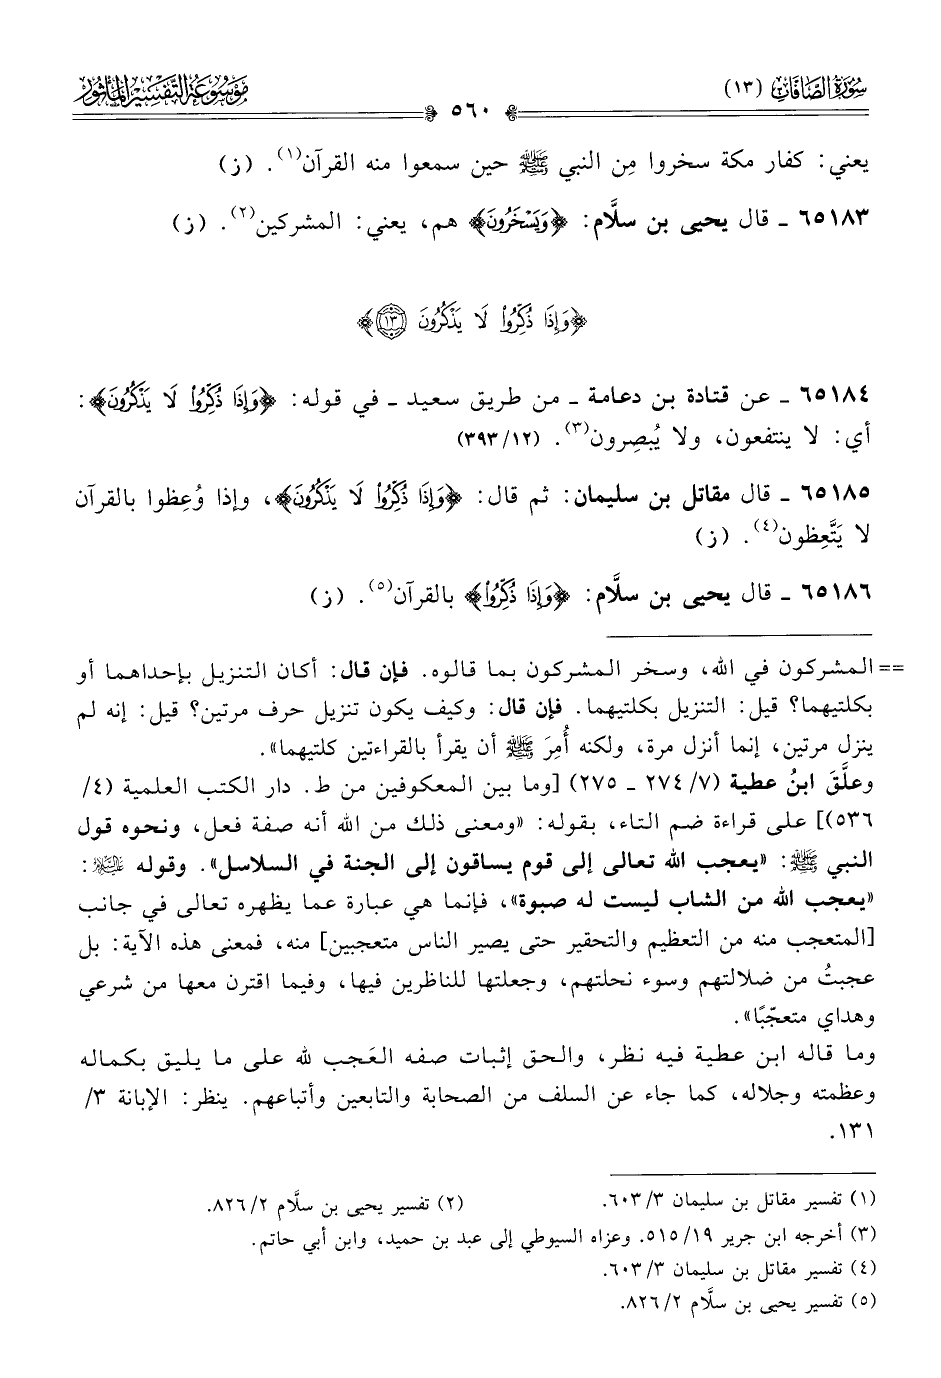 سُورَةُ الصَّافَّاتِ (١٣)
٥٦٠
مَوْسُوعَة التَّفْسِير المَأْثُور
يعني: كفار مكة سخروا مِن النبي ﷺ حين سمعوا منه القرآن(١). (ز)
٦٥١٨٣ ـ قال يحيى بن سلَّام: ﴿وَيَسْخَرُونَ﴾ هم، يعني: المشركين(٢). (ز)
﴿وَإِذَا ذُكِّرُواْ لَا يَذْكُرُونَ ١٣﴾
٦٥١٨٤ ـ عن قتادة بن دعامة ـ من طريق سعيد ـ في قوله: ﴿وَإِذَا ذُكِّرُواْ لَا يَذْكُرُونَ﴾:
أي: لا ينتفعون، ولا يُبصِرون(٣). (٣٩٣/١٢)
٦٥١٨٥ ـ قال مقاتل بن سليمان: ثم قال: ﴿وَإِذَا ذُكِّرُواْ لَا يَذْكُرُونَ﴾، وإذا وُعِظوا بالقرآن
لا يَتَّعِظون(٤). (ز)
٦٥١٨٦ ـ قال يحيى بن سلَّام: ﴿وَإِذَا ذُكِّرُواْ﴾ بالقرآن(٥). (ز)
== المشركون في الله، وسخر المشركون بما قالوه. فإن قال: أكان التنزيل بإحداهما أو
بكلتيهما؟ قيل: التنزيل بكلتيهما. فإن قال: وكيف يكون تنزيل حرف مرتين؟ قيل: إنه لم
ينزل مرتين، إنما أنزل مرة، ولكنه أُمِرَ ﷺ أن يقرأ بالقراءتين كلتيهما».
وعلَّقَ ابنُ عطية (٧/ ٢٧٤ ـ ٢٧٥) [وما بين المعكوفين من ط. دار الكتب العلمية (٤/
٥٣٦)] على قراءة ضم التاء، بقوله: «ومعنى ذلك من الله أنه صفة فعل، ونحوه قول
النبي ﷺ: «يعجب الله تعالى إلى قوم يساقون إلى الجنة في السلاسل». وقوله عليه السلام:
«يعجب الله من الشاب ليست له صبوة»، فإنما هي عبارة عما يظهره تعالى في جانب
[المتعجب منه من التعظيم والتحقير حتى يصير الناس متعجبين] منه، فمعنى هذه الآية: بل
عجبتُ من ضلالتهم وسوء نحلتهم، وجعلتها للناظرين فيها، وفيما اقترن معها من شرعي
وهداي متعجّبًا».
وما قاله ابن عطية فيه نظر، والحق إثبات صفه العَجب لله على ما يليق بكماله
وعظمته وجلاله، كما جاء عن السلف من الصحابة والتابعين وأتباعهم. ينظر: الإبانة ٣/
١٣١.
(١) تفسير مقاتل بن سليمان ٣/ ٦٠٣.
(٢) تفسير يحيى بن سلَّام ٢/ ٨٢٦.
(٣) أخرجه ابن جرير ١٩/ ٥١٥. وعزاه السيوطي إلى عبد بن حميد، وابن أبي حاتم.
(٤) تفسير مقاتل بن سليمان ٣/ ٦٠٣.
(٥) تفسير يحيى بن سلَّام ٢/ ٨٢٦.